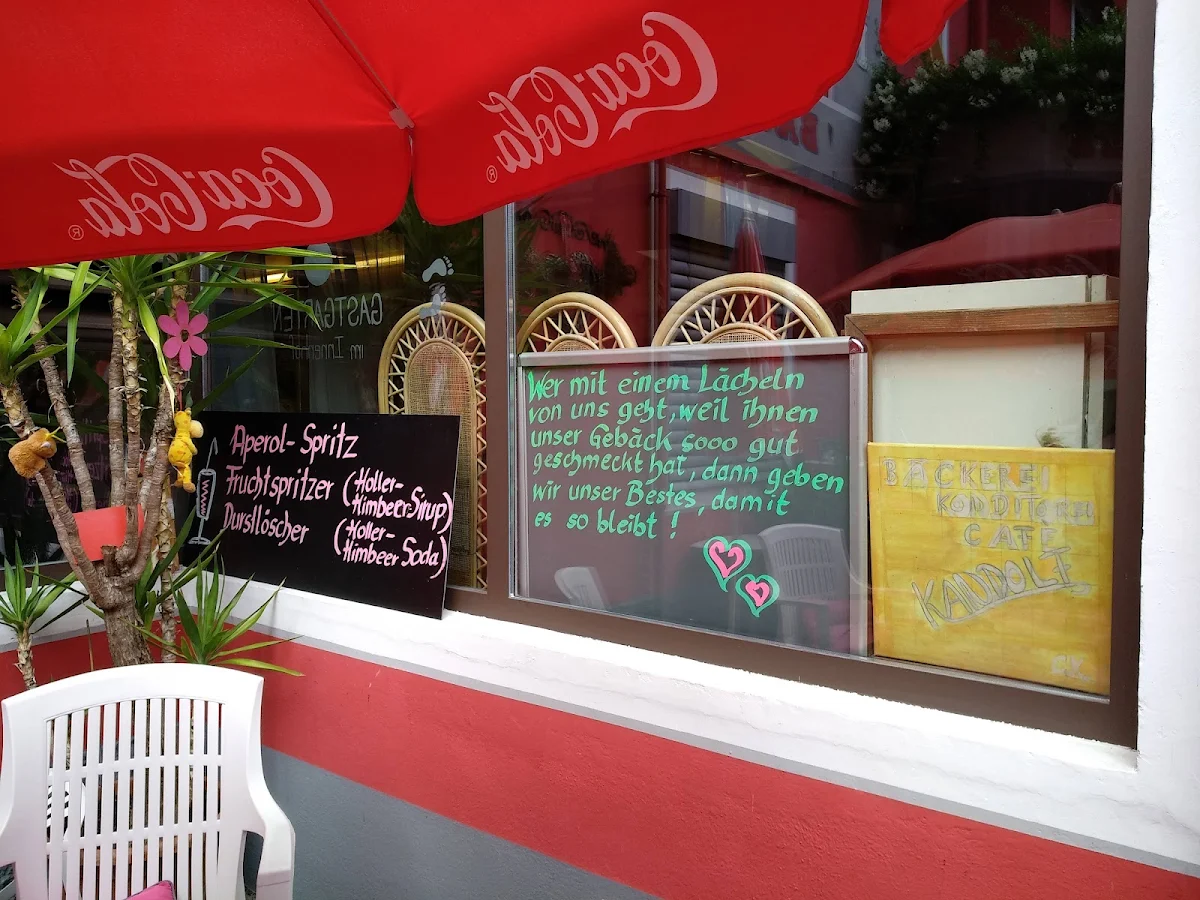 Coca-Cola
Coca-Cola
GASTGARTEN
im Innenhof
Aperol-Spritz
Fruchtspritzer (Holler-
Himbeer-Sirup)
Durstlöscher (Holler-
Himbeer Soda)
Wer mit einem Lächeln
von uns geht, weil ihnen
unser Gebäck sooo gut
geschmeckt hat, dann geben
wir unser Bestes, damit
es so bleibt!
BÄCKEREI
KONDITOREI
CAFE
KANDOLF